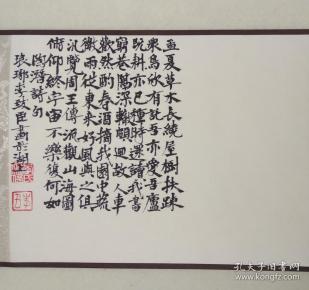 孟夏草木長繞屋樹扶疎
衆鳥欣有託吾亦愛吾廬
既耕亦已種時還讀我書
窮巷隔深轍頗迴故人車
歡然酌春酒摘我園中蔬
微雨從東來好風與之俱
汎覽周王傳流觀山海圖
俯仰終宇宙不樂復何如
陶潛詩句
琅琊李政臣書於湖上
孔夫子旧书网